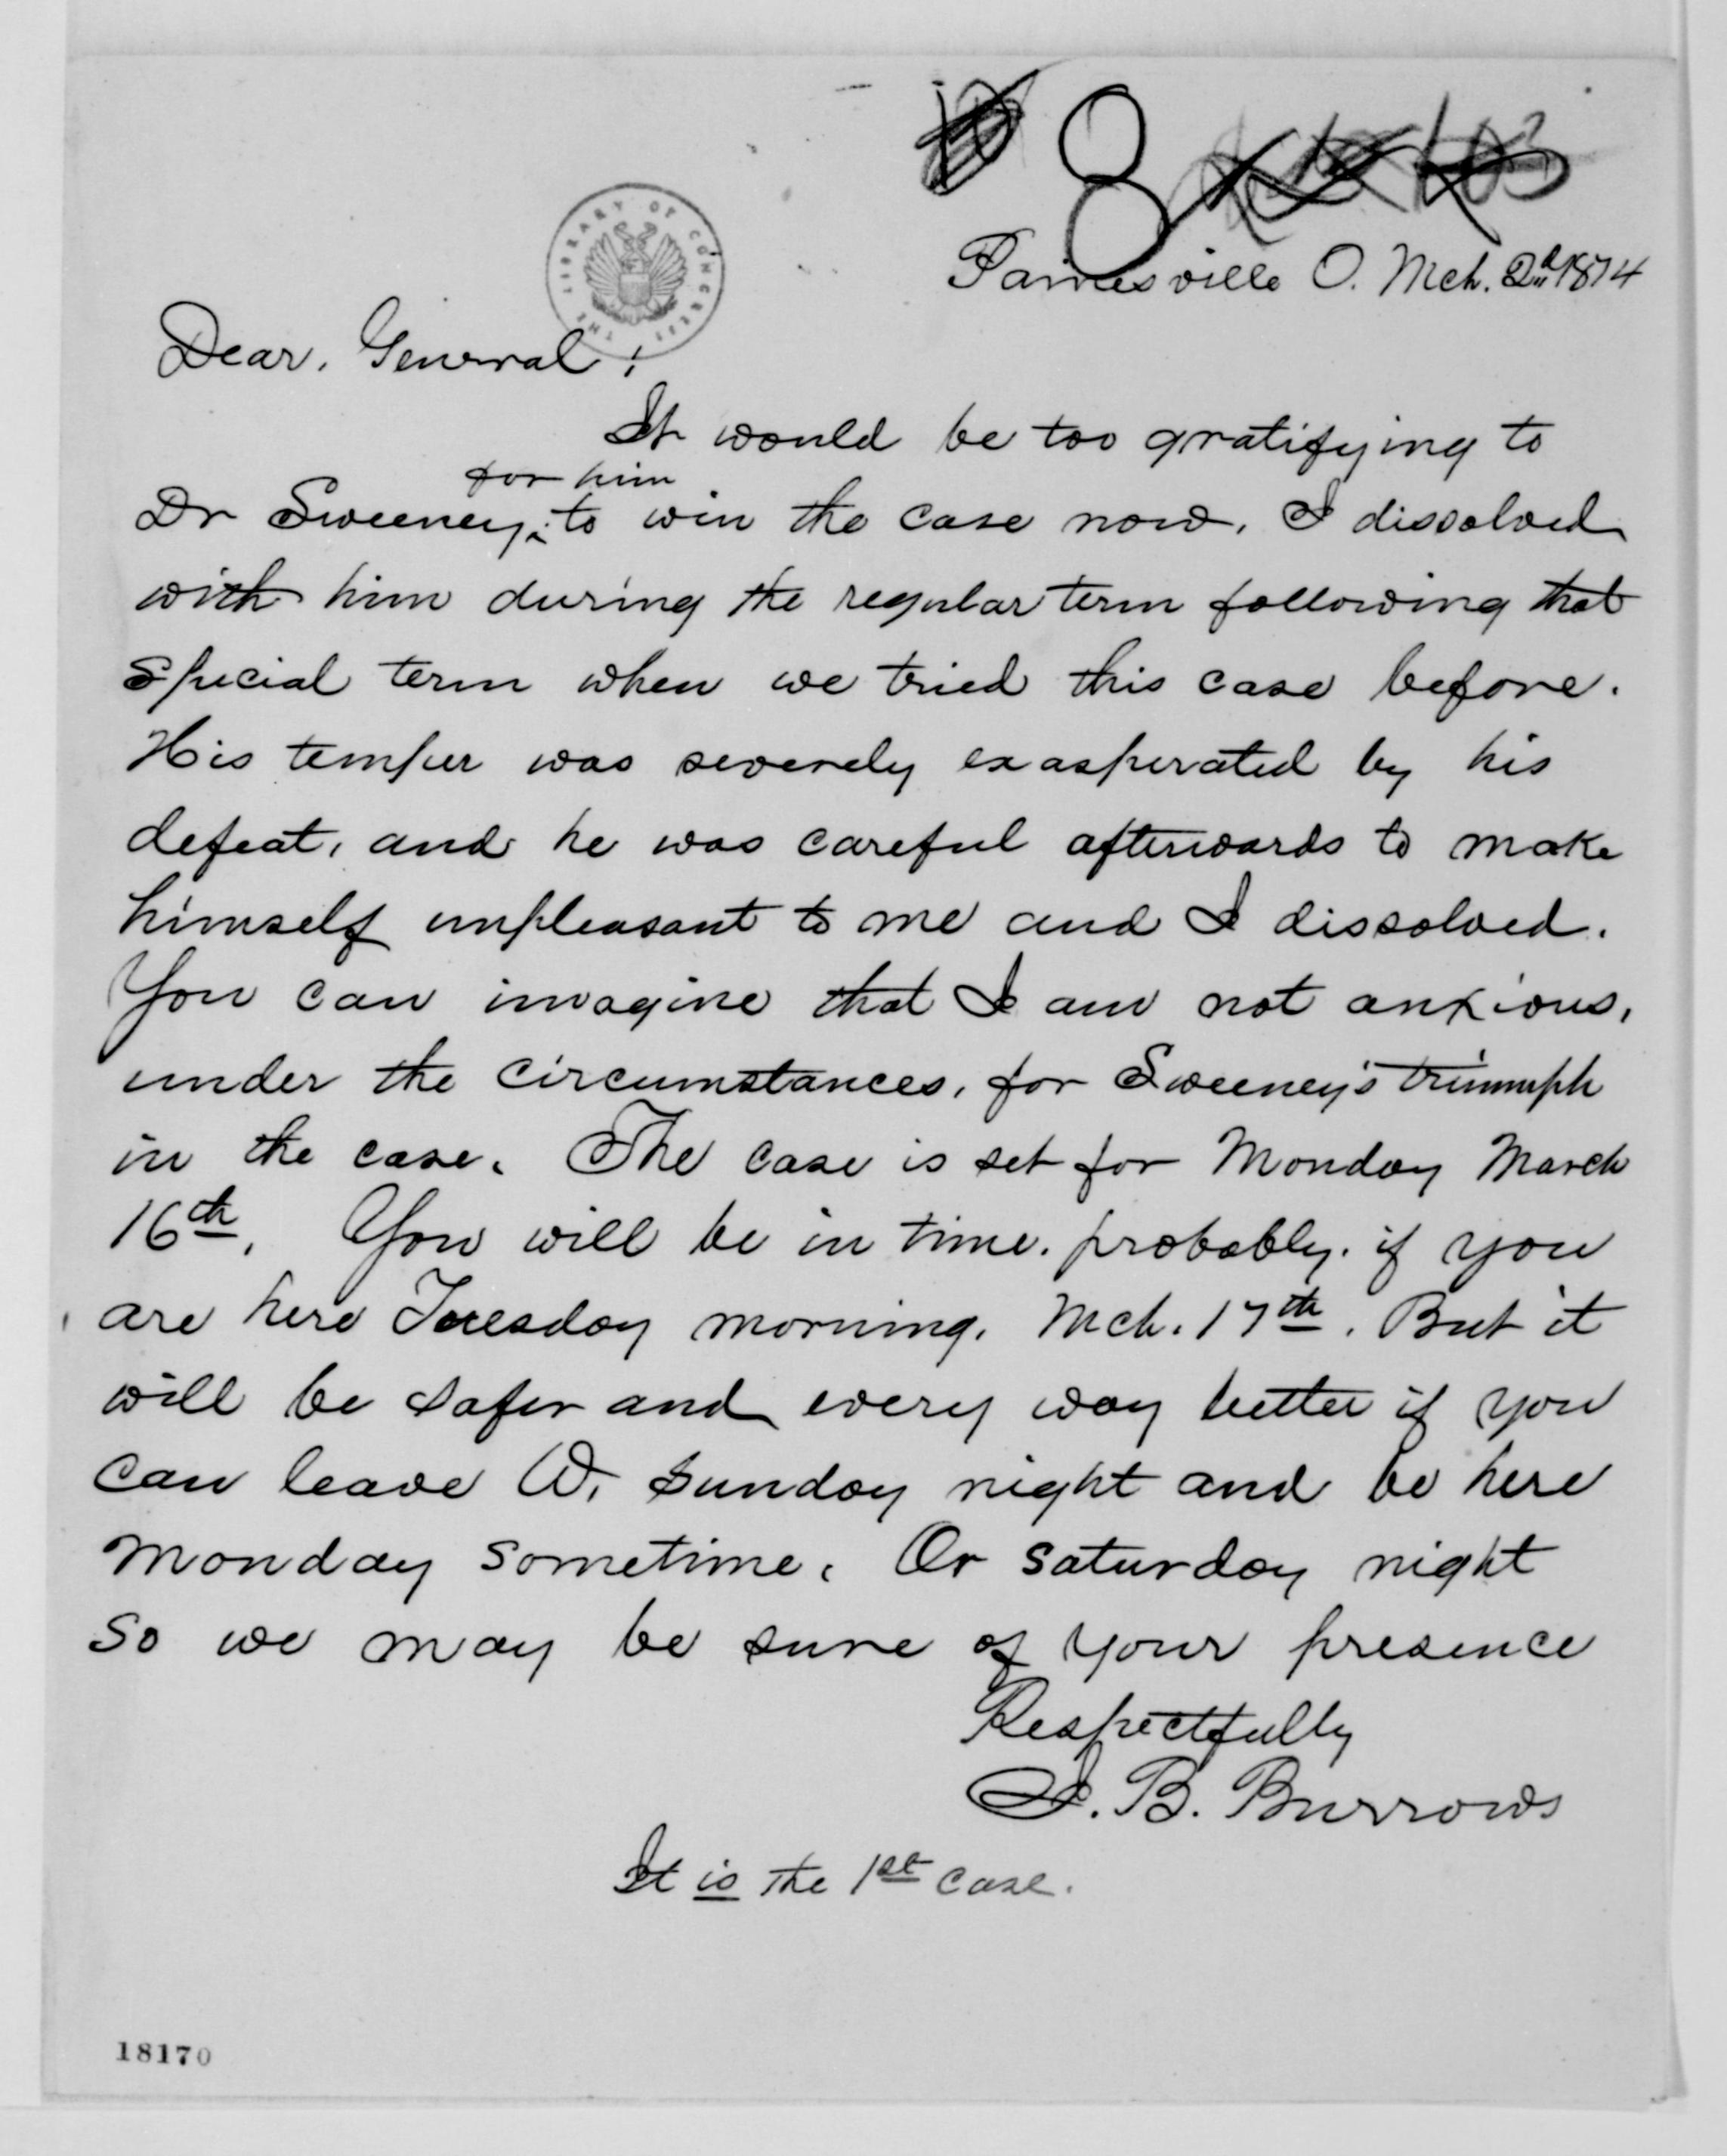 8
THE LIBRARY OF CONGRESS
Painesville O. Mch. 2d 1874
Dear. General;
It would be too gratifying to
for him
Dr Sweeney, to win the case now. I dissolved
with him during the regular term following that
special term when we tried this case before.
His temper was severely exasperated by his
defeat, and he was careful afterwards to make
himself unpleasant to me and I dissolved.
You can imagine that I am not anxious,
under the circumstances, for Sweeney's triumph
in the case. The case is set for Monday March
16th. You will be in time. probably. if you
are here Tuesday morning. Mch. 17th. But it
will be safer and every way better if you
can leave W. Sunday night and be here
Monday sometime. Or Saturday night
so we may be sure of your presence
Respectfully
J. B. Burrows
It is the 1st case.
18170